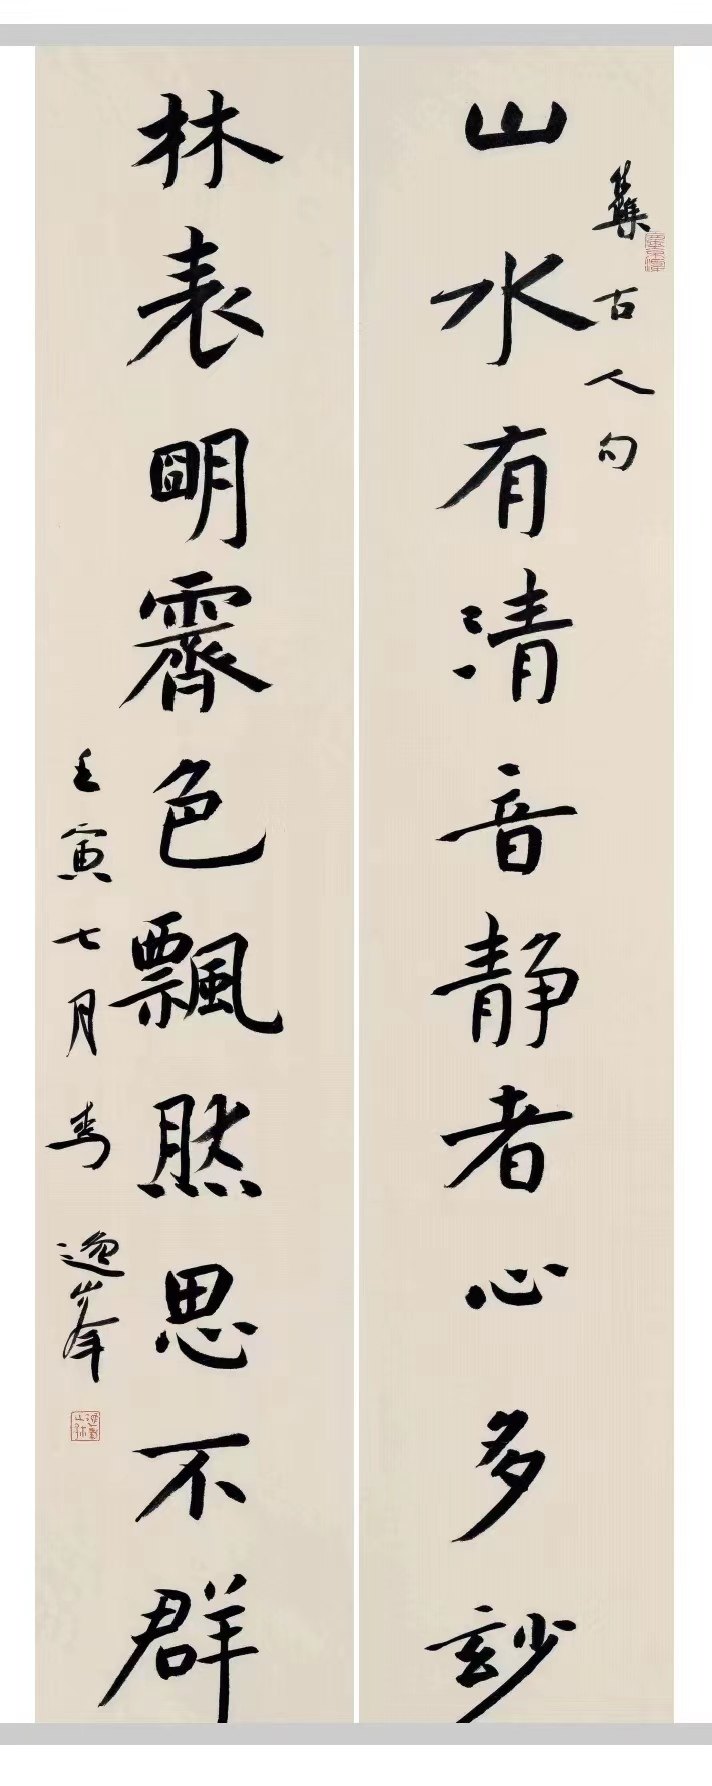 集古人句
山水有清音静者心多玅
林表明霽色飄然思不群
壬寅七月秀逸峯